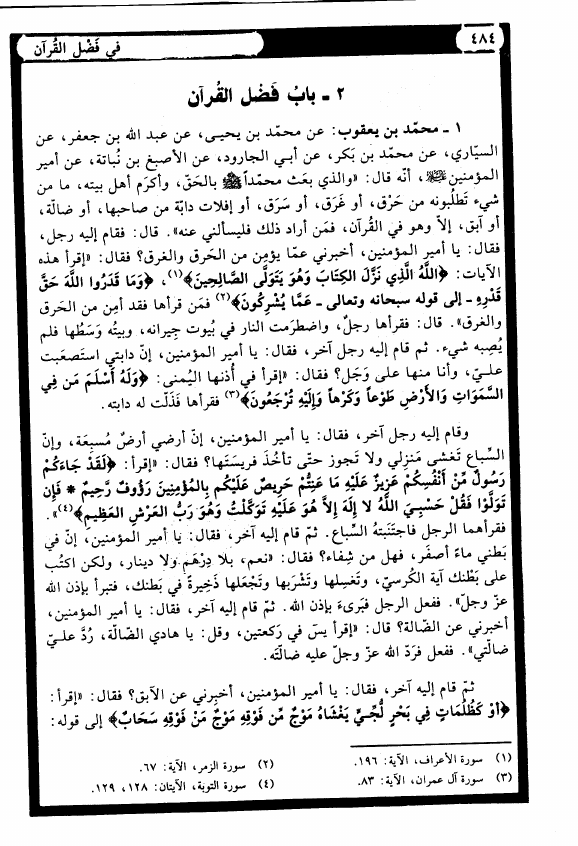 ٤٨٤
في فَضْل القُرآن
٢ ـ بابُ فَضْل القُرآن
١ ـ محمّد بن يعقوب: عن محمّد بن يحيى، عن عبد الله بن جعفر، عن
السيّاري، عن محمّد بن بَكر، عن أبي الجارود، عن الأصبغ بن نُباتة، عن أمير
المؤمنين ﷺ، أنّه قال: «والذي بعَث محمّداً ﷺ بالحَقّ، وأكرَم أهل بيته، ما من
شيء تَطلُبونه من حَرْق، أو غَرَق، أو سَرَق، أو إفلات دابّة من صاحبها، أو ضالّة،
أو آبق، إلاّ وهو في القُرآن، فمَن أراد ذلك فليسألني عنه». قال: فقام إليه رجل،
فقال: يا أمير المؤمنين، أخبرني عمّا يؤمن من الحرق والغرق؟ فقال: «إقرأ هذه
الآيات: ﴿اللَّهُ الَّذِي نَزَّلَ الكِتَابَ وَهُوَ يَتَوَلَّى الصَّالِحِينَ﴾(١)، ﴿وَمَا قَدَرُوا اللَّهَ حَقَّ
قَدْرِهِ ـ إلى قوله سبحانه وتعالى ـ عَمَّا يُشْرِكُونَ﴾(٢) فمَن قرأها فقد أمِن من الحَرق
والغرق». قال: فقرأها رجلٌ، واضطرَمت النار في بيوت جِيرانه، وبيتُه وَسَطُها فلم
يُصِبه شيء. ثم قام إليه رجل آخر، فقال: يا أمير المؤمنين، إنّ دابتي استَصعَبت
عليّ، وأنا منها على وَجَل؟ فقال: «إقرأ في أُذنها اليُمنى: ﴿وَلَهُ أَسْلَمَ مَن فِي
السَّمَوَاتِ وَالأَرْضِ طَوْعاً وَكَرْهاً وَإِلَيْهِ تُرْجَعُونَ﴾(٣) فقرأها فَذَلّت له دابته.
وقام إليه رجل آخر، فقال: يا أمير المؤمنين، إنّ أرضي أرضٌ مُسبِعَة، وإنّ
السِّباع تَغشى مَنزلي ولا تَجوز حتّى تأخُذ فريستَها؟ فقال: «إقرأ: ﴿لَقَدْ جَاءَكُمْ
رَسُولٌ مِّنْ أَنْفُسِكُمْ عَزِيزٌ عَلَيْهِ مَا عَنِتُّمْ حَرِيصٌ عَلَيْكُم بِالمُؤْمِنِينَ رَؤُوفٌ رَّحِيمٌ * فَإِن
تَوَلَّوْا فَقُلْ حَسْبِيَ اللَّهُ لا إِلَهَ إِلاَّ هُوَ عَلَيْهِ تَوَكَّلْتُ وَهُوَ رَبُّ العَرْشِ العَظِيمِ﴾(٤)».
فقرأهما الرجل فاجتَنبتهُ السِّباع. ثمّ قام إليه آخر، فقال: يا أمير المؤمنين، إنّ في
بَطني ماءً أصفَر، فهل من شِفاء؟ فقال: «نعم، بلا دِرْهَم ولا دينار، ولكن اكتُب
على بَطْنك آية الكُرسيّ، وتَغسِلها وتَشْرَبها وتَجْعَلها ذَخيرةً في بَطنك، فتبرأ بإذن الله
عزّ وجلّ». ففعل الرجل فبَرىء بإذن الله. ثمّ قام إليه آخر، فقال: يا أمير المؤمنين،
أخبرني عن الضالة؟ قال: «إقرأ يسَ في ركعتين، وقل: يا هادي الضالّة، رُدَّ عليّ
ضالّتي». ففعل فردّ الله عزّ وجلّ عليه ضالتَه.
ثمّ قام إليه آخر، فقال: يا أمير المؤمنين، أخبِرني عن الآبق؟ فقال: «إقرأ:
﴿أَوْ كَظُلُمَاتٍ فِي بَحْرٍ لُّجِّيٍّ يَغْشَاهُ مَوْجٌ مِّن فَوْقِهِ مَوْجٌ مِّنْ فَوْقِهِ سَحَابٌ﴾ إلى قوله:
(١) سورة الأعراف، الآية: ١٩٦.
(٢) سورة الزمر، الآية: ٦٧.
(٣) سورة آل عمران، الآية: ٨٣.
(٤) سورة التوبة، الآيتان: ١٢٨، ١٢٩.